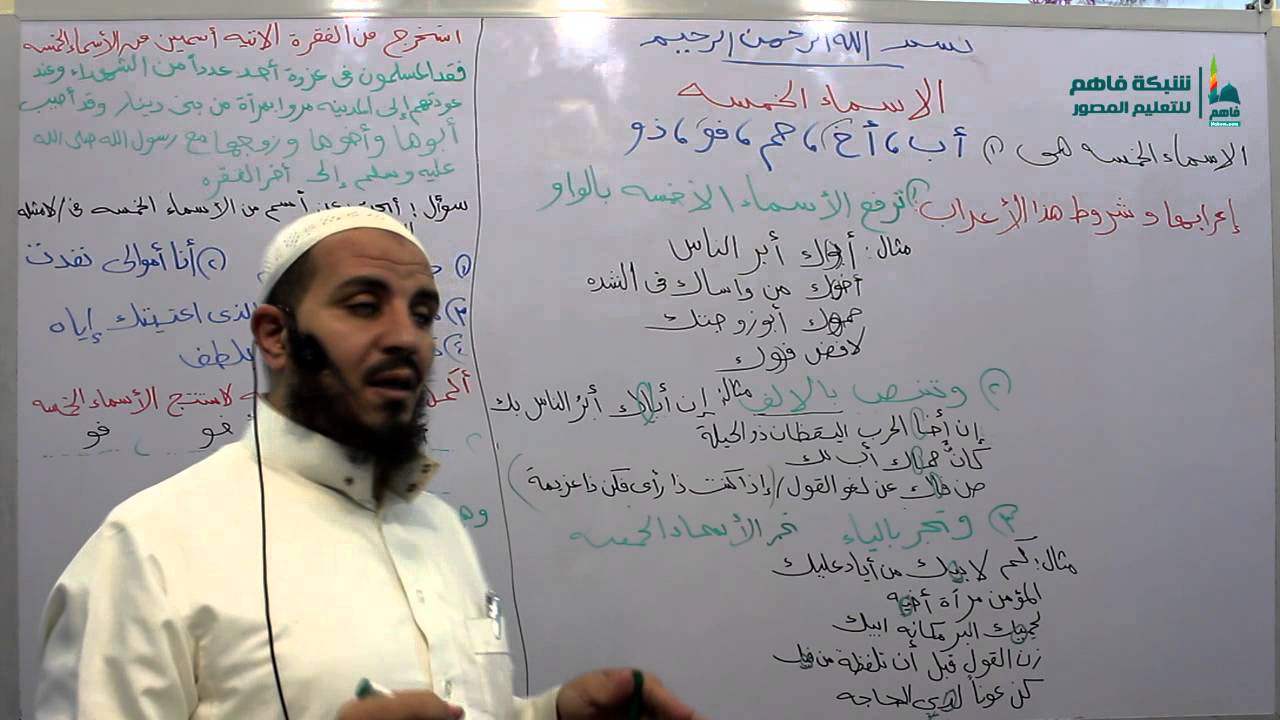 بسم الله الرحمن الرحيم
الاسماء الخمسه
الاسماء الخمسه هى ١) أب، أخ، حم، فو، ذو
إعرابها وشروط هذا الأعراب: ١) ترفع الأسماء الأخمسه بالواو
مثال: أبوك أبر الناس
أخوك من واساك فى الشده
حموك أبو زوجتك
لافض فوك
٢) وتنصب بالالف مثال: إن أباك أبرُ الناس بك
إن أخا الحرب اليقظان ذو الحيلة
كان حماك أب لك
صن فاك عن لغو القول / إذا كنت ذا رأى فكن ذا عزيمة)
٣) وتجر بالياء نحر الأسماء الخمسه
مثال: كم لابيك من أياد عليك
المؤمن مرآة أخيه
لحميك البر مكانه ابيك
زن القول قبل أن تلفظة من فيك
كن عوناً لذي الحاجه
استخرج من الفقرة الاتيه أسمين من الأسماء الخمسه
فقد المسلمون فى غزوة أحد عدداً من الشهداء وعند
عودتهم إلى المدينه مروا بمرأة من بنى دينار وقد أصيب
أبوها وأخوها وزوجها مع رسول الله صلى الله
عليه وسلم إلى أخر الفقره
سؤال: أبحث عن أسم من الأسماء الخمسه فى الامثله
١) ٢) أنا أموالى نفدت
٣) الذى اعتيتك إياه
٤) بلطف
أكمل لاستنتج الأسماء الخمسه
فو
شبكة فاهم
للتعليم المصور
فاهم